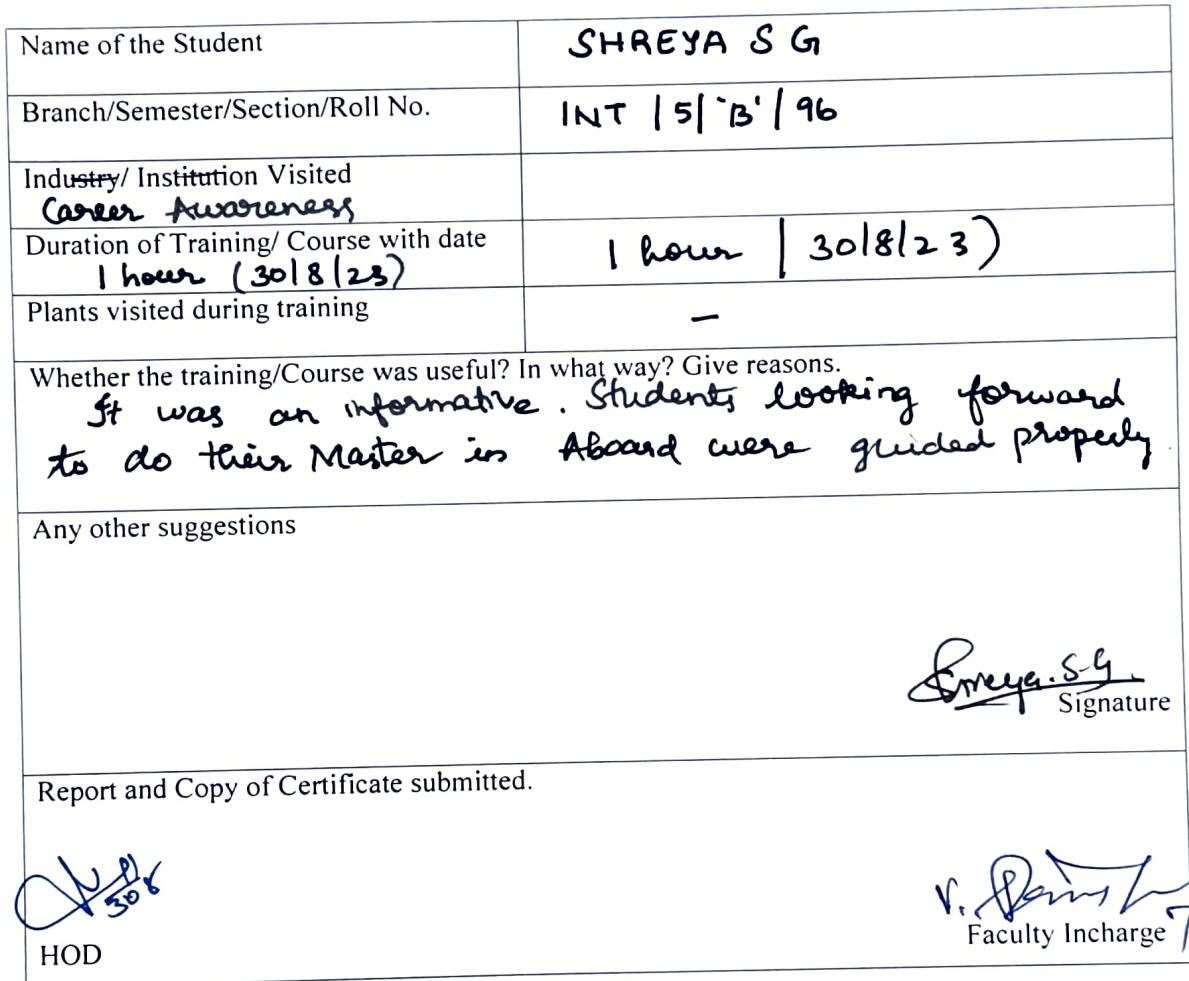 Name of the Student SHREYA S G
Branch/Semester/Section/Roll No. INT | 5 | 'B' | 96
Industry/ Institution Visited
Career Awareness
Duration of Training/ Course with date 1 hour | 30/8/23)
1 hour (30/8/23)
Plants visited during training –
Whether the training/Course was useful? In what way? Give reasons.
It was an informative. Students looking forward
to do their Master in Aboard were guided properly.
Any other suggestions
Shreya.S.G.
Signature
Report and Copy of Certificate submitted.
V.
HOD Faculty Incharge